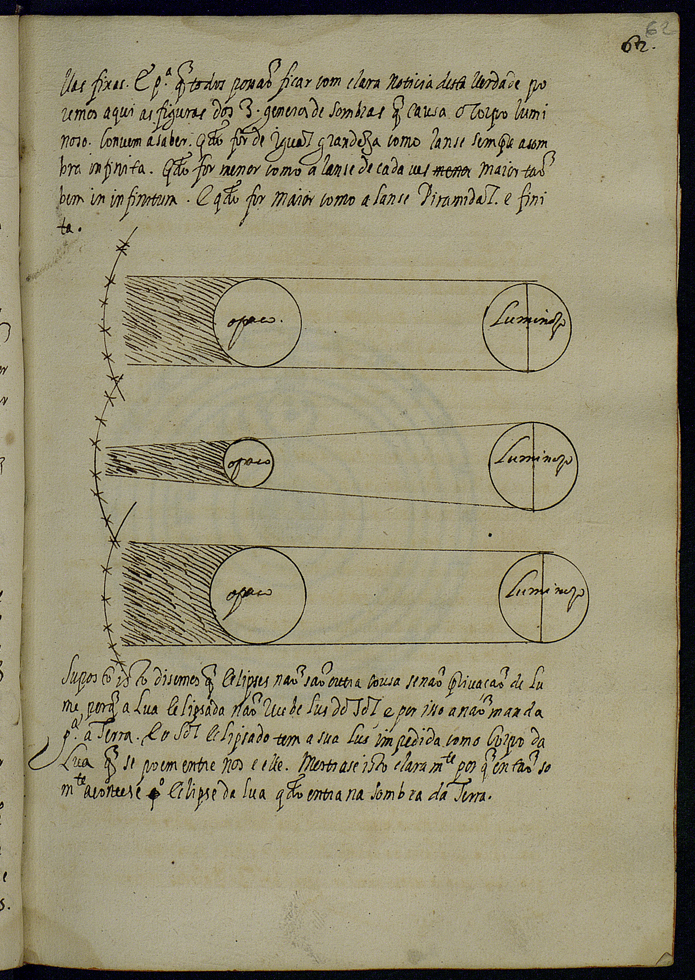 62
62.
llas fixas. E p.ª q̃ todos possaõ ficar com clara noticia desta verdade po
remos aqui as figuras dos 3. generos de sombras q̃ causa o corpo lumi
noso. Convem a saber. Qdo for de igual grandeza como lanse sempre a som
bra infinita. Qdo for menor como a lanse de cada ves menor maior taõ
bem in infinitum. E qdo for maior como a lanse Piramidal. e fini
ta.
opaco.
Luminozo
opaco
Luminozo
opaco
Luminozo
Suposto isto disemos q̃ Eclipses naõ saõ outra cousa senaõ privaçaõ de Lu
me porq̃ a Lua Eclipsada naõ recebe Lus do Sol e por isso a naõ manda
pª a Terra. E o Sol Eclipsado tem a sua Lus impedida como Corpo da
Lua q̃ se poem entre nos e elle. Mostrase isto claramte por q̃ entaõ so
mte acontese o Eclipse da Lua qdo entra na sombra da Terra.